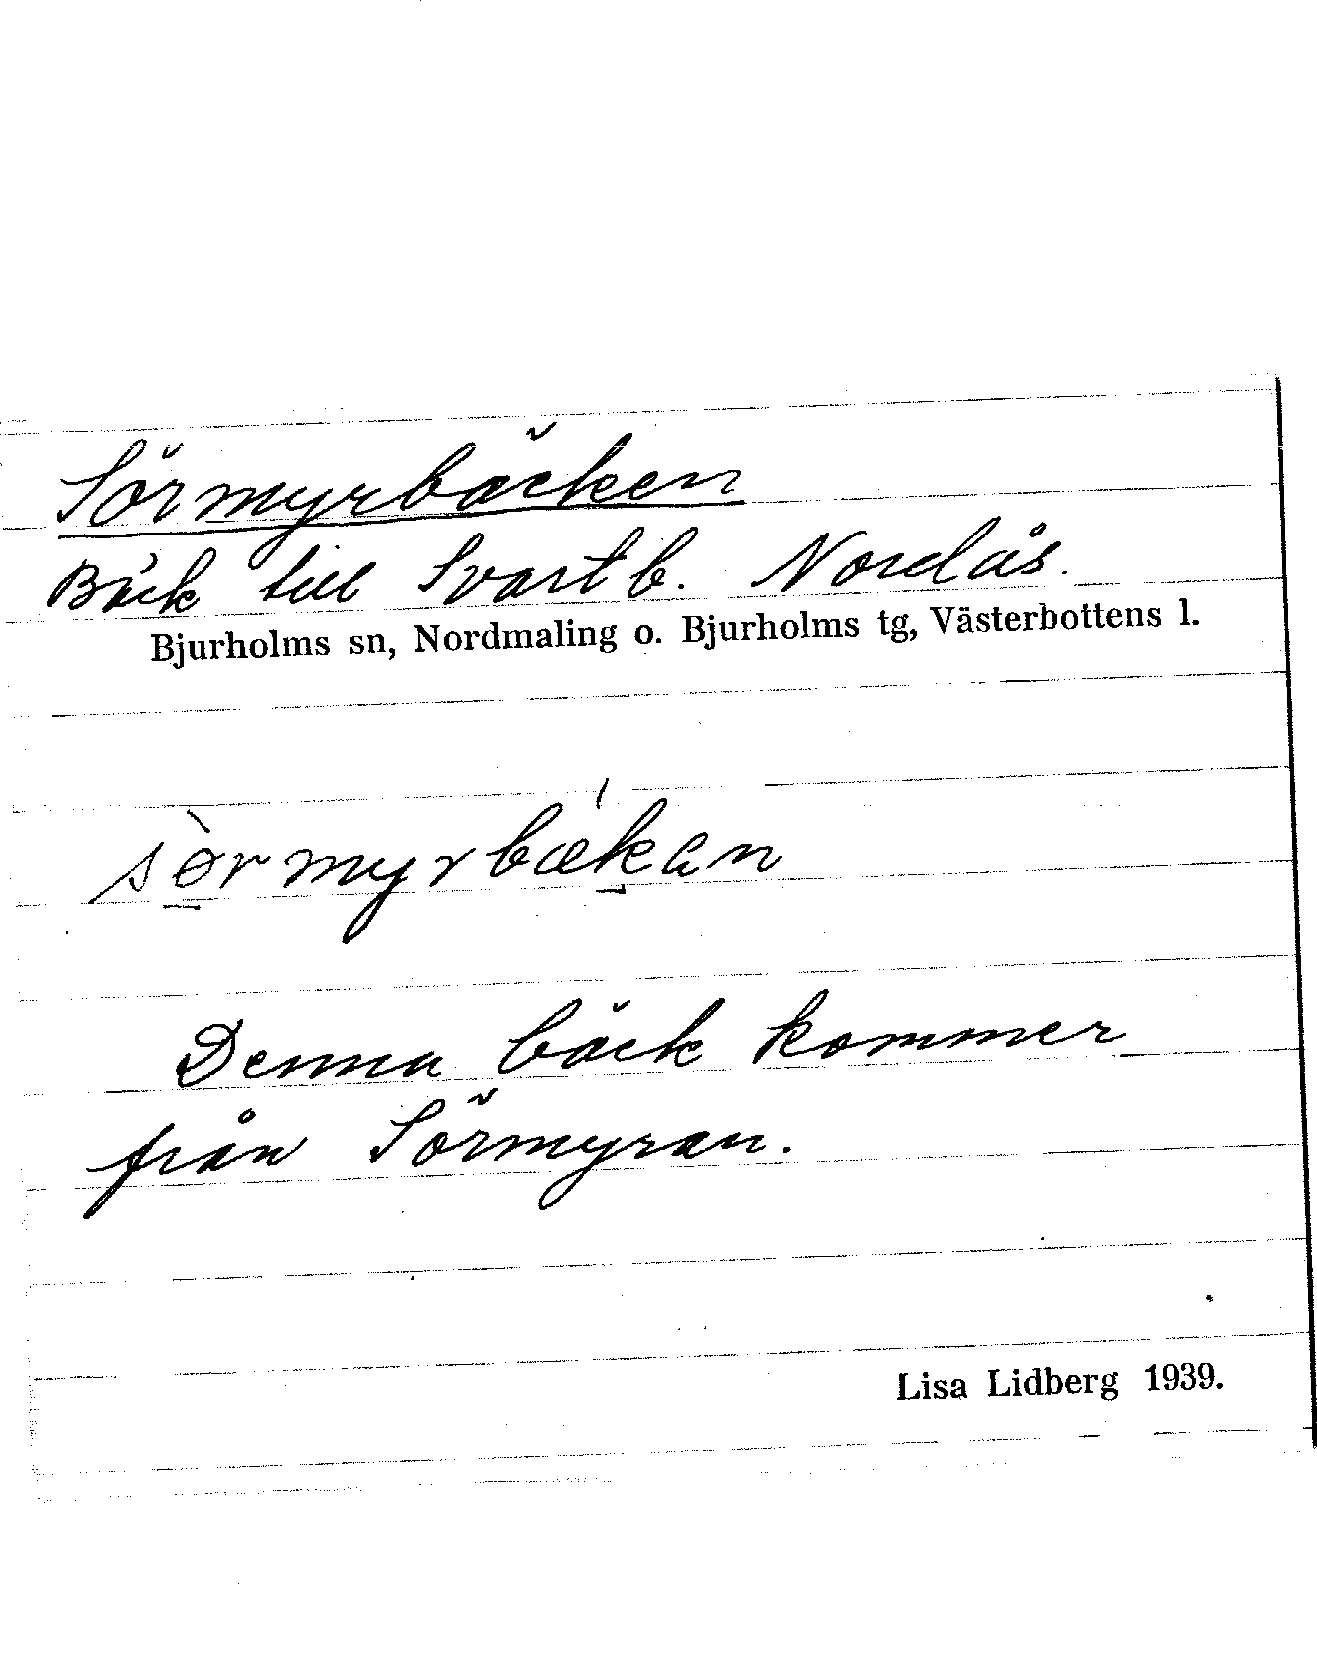 Sörmyrbäcken
Bäck till Svartb. Nordås.
Bjurholms sn, Nordmaling o. Bjurholms tg, Västerbottens l.
sø̀rmyrbækán
Denna bäck kommer
från Sörmyran.
Lisa Lidberg 1939.